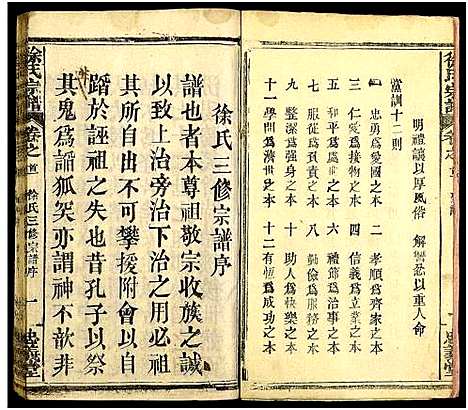 徐氏宗譜
明禮讓以厚風俗　解讐忿以重人命
黨訓十二則
一 忠勇爲愛國之本　二 孝順爲齊家之本
三 仁愛爲接物之本　四 信義爲立業之本
五 和平爲處世之本　六 禮節爲治事之本
七 服從爲負責之本　八 勤儉爲服務之本
九 整潔爲強身之本　十 助人爲快樂之本
十一 學問爲濟世之本　十二 有恆爲成功之本
徐氏三修宗譜序
譜也者本尊祖敬宗收族之誠
以致上治旁治下治之用必祖
其所自出不可攀援附會以自
蹈於誣祖之失也昔孔子以祭
非其鬼爲諂狐突亦謂神不歆非
徐氏宗譜
卷之首
徐氏三修宗譜序
一
忠義堂